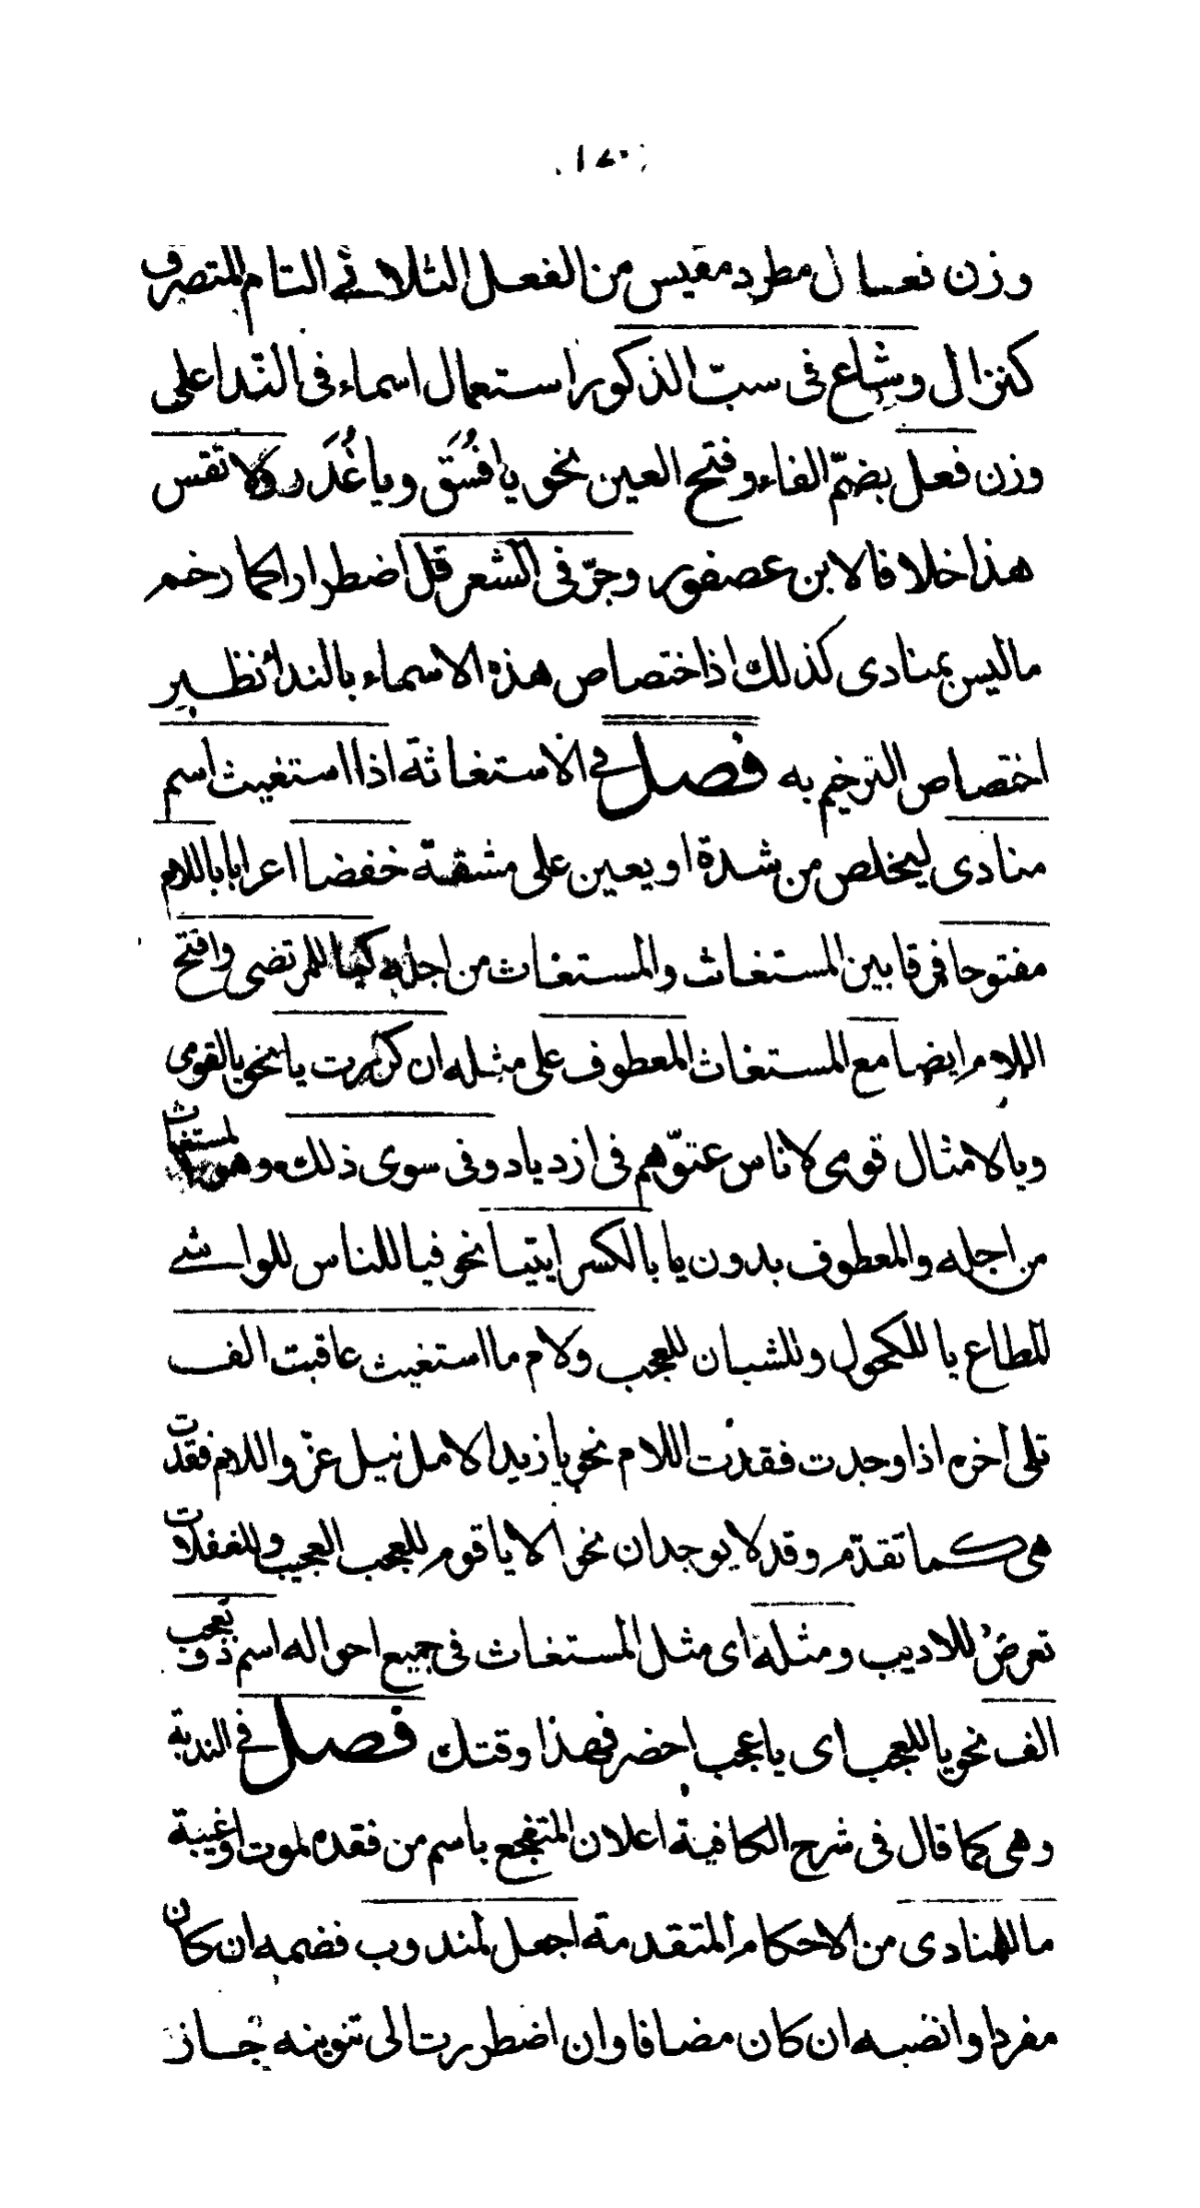 ١٧٠
وزن فعال مطرد مقيس من الفعل الثلاثي التام المتصرف
كنزال وشاع فى سبّ الذكور استعمال اسماء فى الندا على
وزن فعل بضمّ الفاء وفتح العين نحو يا فُسَق ويا غُدَر ولا تقس
هذا خلافا لابن عصفور وجرّ فى الشعر فل اضطرارا كما رخم
ما ليس بمنادى كذلك اذ اختصاص هذه الاسماء بالندا نظير
اختصاص الترخيم به فصل في الاستغاثة اذا استغيث اسم
منادى ليخلص من شدة او يعين على مشقة خفضا اعرابا باللام
مفتوحا فرقا بين المستغاث والمستغاث من اجله كيا للمرتضى وافتح
اللام ايضا مع المستغاث المعطوف على مثله ان كررت يا نحو يا لقومى
ويا لامثال قومى لاناس عتوّهم فى ازدياد وفى سوى ذلك وهو المستغاث
من اجله والمعطوف بدون يا بالكسر ايتيا نحو فيا للناس للواشي
المطاع يا للكهول وللشبان للعجب ولام ما استغيث عاقبت الف
تلى اخره اذا وجدت فقدت اللام نحو يا زيدا لامل نيل عزّ واللام فقدت
هى كما تقدّم وقد لا يوجدان نحو الا يا قوم للعجب العجيب وللغفلات
تعرضُ للاديب ومثله اى مثل المستغاث فى جميع احواله اسم ذو تعجب
الف نحو يا للعجب اى يا عجب احضر فهذا وقتك فصل في الندبة
وهى كما قال فى شرح الكافية اعلان المتفجع باسم من فقده لموت او غيبة
ما للمنادى من الاحكام المتقدمة اجعل لمندوب فضمه ان كان
مفردا وانصبه ان كان مضافا وان اضطررت الى تنوينه جاز